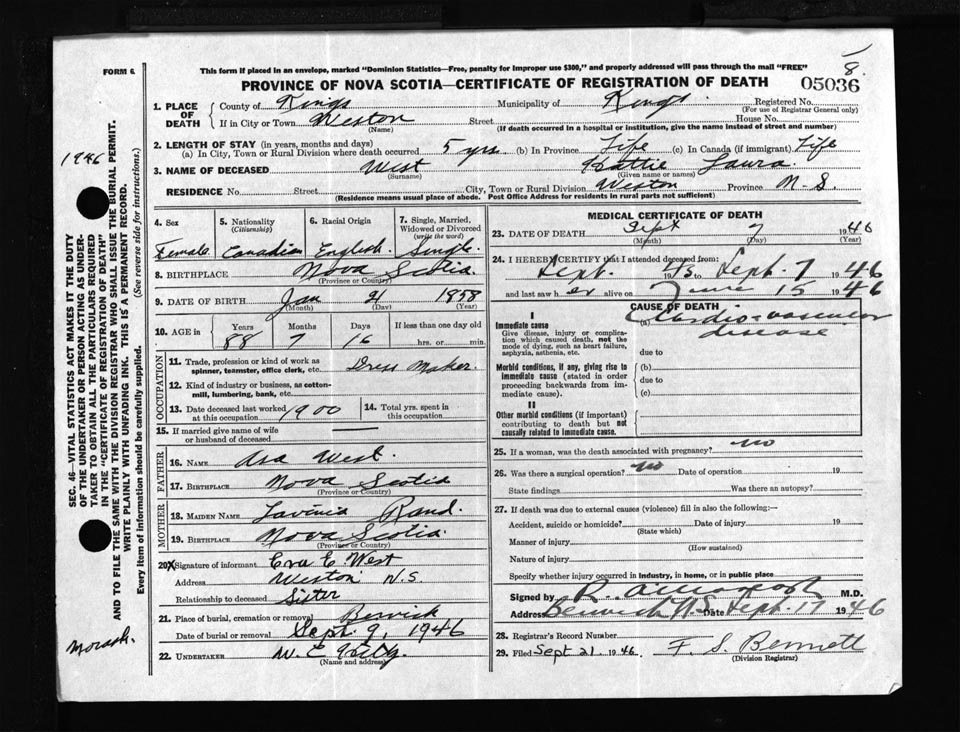 8.
FORM 6.
This form if placed in an envelope, marked "Dominion Statistics—Free, penalty for improper use $300," and properly addressed will pass through the mail "FREE"
PROVINCE OF NOVA SCOTIA—CERTIFICATE OF REGISTRATION OF DEATH
05036
1. PLACE OF DEATH County of Kings Municipality of Kings Registered No.
(For use of Registrar General only)
If in City or Town Weston Street House No.
(Name) (If death occurred in a hospital or institution, give the name instead of street and number)
2. LENGTH OF STAY (in years, months and days)
(a) In City, Town or Rural Division where death occurred 5 yrs (b) In Province Life (c) In Canada (if immigrant) Life
3. NAME OF DECEASED West Hattie Laura
(Surname) (Given name or names)
RESIDENCE No. Street City, Town or Rural Division Weston Province N-S.
(Residence means usual place of abode. Post Office Address for residents in rural parts not sufficient)
4. Sex 5. Nationality (Citizenship) 6. Racial Origin 7. Single, Married, Widowed or Divorced (write the word)
Female Canadian English. Single.
8. BIRTHPLACE Nova Scotia.
(Province or Country)
9. DATE OF BIRTH Jan 21 1858
(Month) (Day) (Year)
10. AGE in Years Months Days If less than one day old
88 7 16 hrs. or min.
OCCUPATION
11. Trade, profession or kind of work as spinner, teamster, office clerk, etc. Dress Maker.
12. Kind of industry or business, as cotton-mill, lumbering, bank, etc.
13. Date deceased last worked at this occupation 1900 14. Total yrs. spent in this occupation
15. If married give name of wife or husband of deceased —
FATHER
16. NAME Asa West.
17. BIRTHPLACE Nova Scotia
(Province or Country)
MOTHER
18. MAIDEN NAME Lavinia Rand.
19. BIRTHPLACE Nova Scotia.
(Province or Country)
20. X Signature of informant Eva E West
Address Weston N.S.
Relationship to deceased Sister
21. Place of burial, cremation or removal Berwick
Date of burial or removal Sept. 9, 1946
22. UNDERTAKER W. E
(Name and address)
MEDICAL CERTIFICATE OF DEATH
23. DATE OF DEATH Sept 7 1946
(Month) (Day) (Year)
24. I HEREBY CERTIFY that I attended deceased from:
Sept. 1943 to Sept. 7 1946
and last saw her alive on June 15 1946
CAUSE OF DEATH
I
Immediate cause (a) Cardio-vascular disease
Give disease, injury or complication which caused death, not the mode of dying, such as heart failure, asphyxia, asthenia, etc.
due to
Morbid conditions, if any, giving rise to immediate cause (stated in order proceeding backwards from immediate cause).
(b)
due to
(c)
II
Other morbid conditions (if important) contributing to death but not causally related to immediate cause.
25. If a woman, was the death associated with pregnancy? no
26. Was there a surgical operation? no Date of operation 19
State findings Was there an autopsy?
27. If death was due to external causes (violence) fill in also the following:—
Accident, suicide or homicide? Date of injury 19
(State which)
Manner of injury
(How sustained)
Nature of injury
Specify whether injury occurred in industry, in home, or in public place
Signed by R. M.D.
Address Berwick N.S. Date Sept. 17 1946
28. Registrar's Record Number
29. Filed Sept 21 1946. F. S. Bennett
(Division Registrar)
1946
SEC. 46—VITAL STATISTICS ACT MAKES IT THE DUTY
OF THE UNDERTAKER OR PERSON ACTING AS UNDER-
TAKER TO OBTAIN ALL THE PARTICULARS REQUIRED
IN THE "CERTIFICATE OF REGISTRATION OF DEATH"
AND TO FILE THE SAME WITH THE DIVISION REGISTRAR WHO SHALL ISSUE THE BURIAL PERMIT.
WRITE PLAINLY WITH UNFADING INK. THIS IS A PERMANENT RECORD.
Every item of information should be carefully supplied. (See reverse side for instructions.)